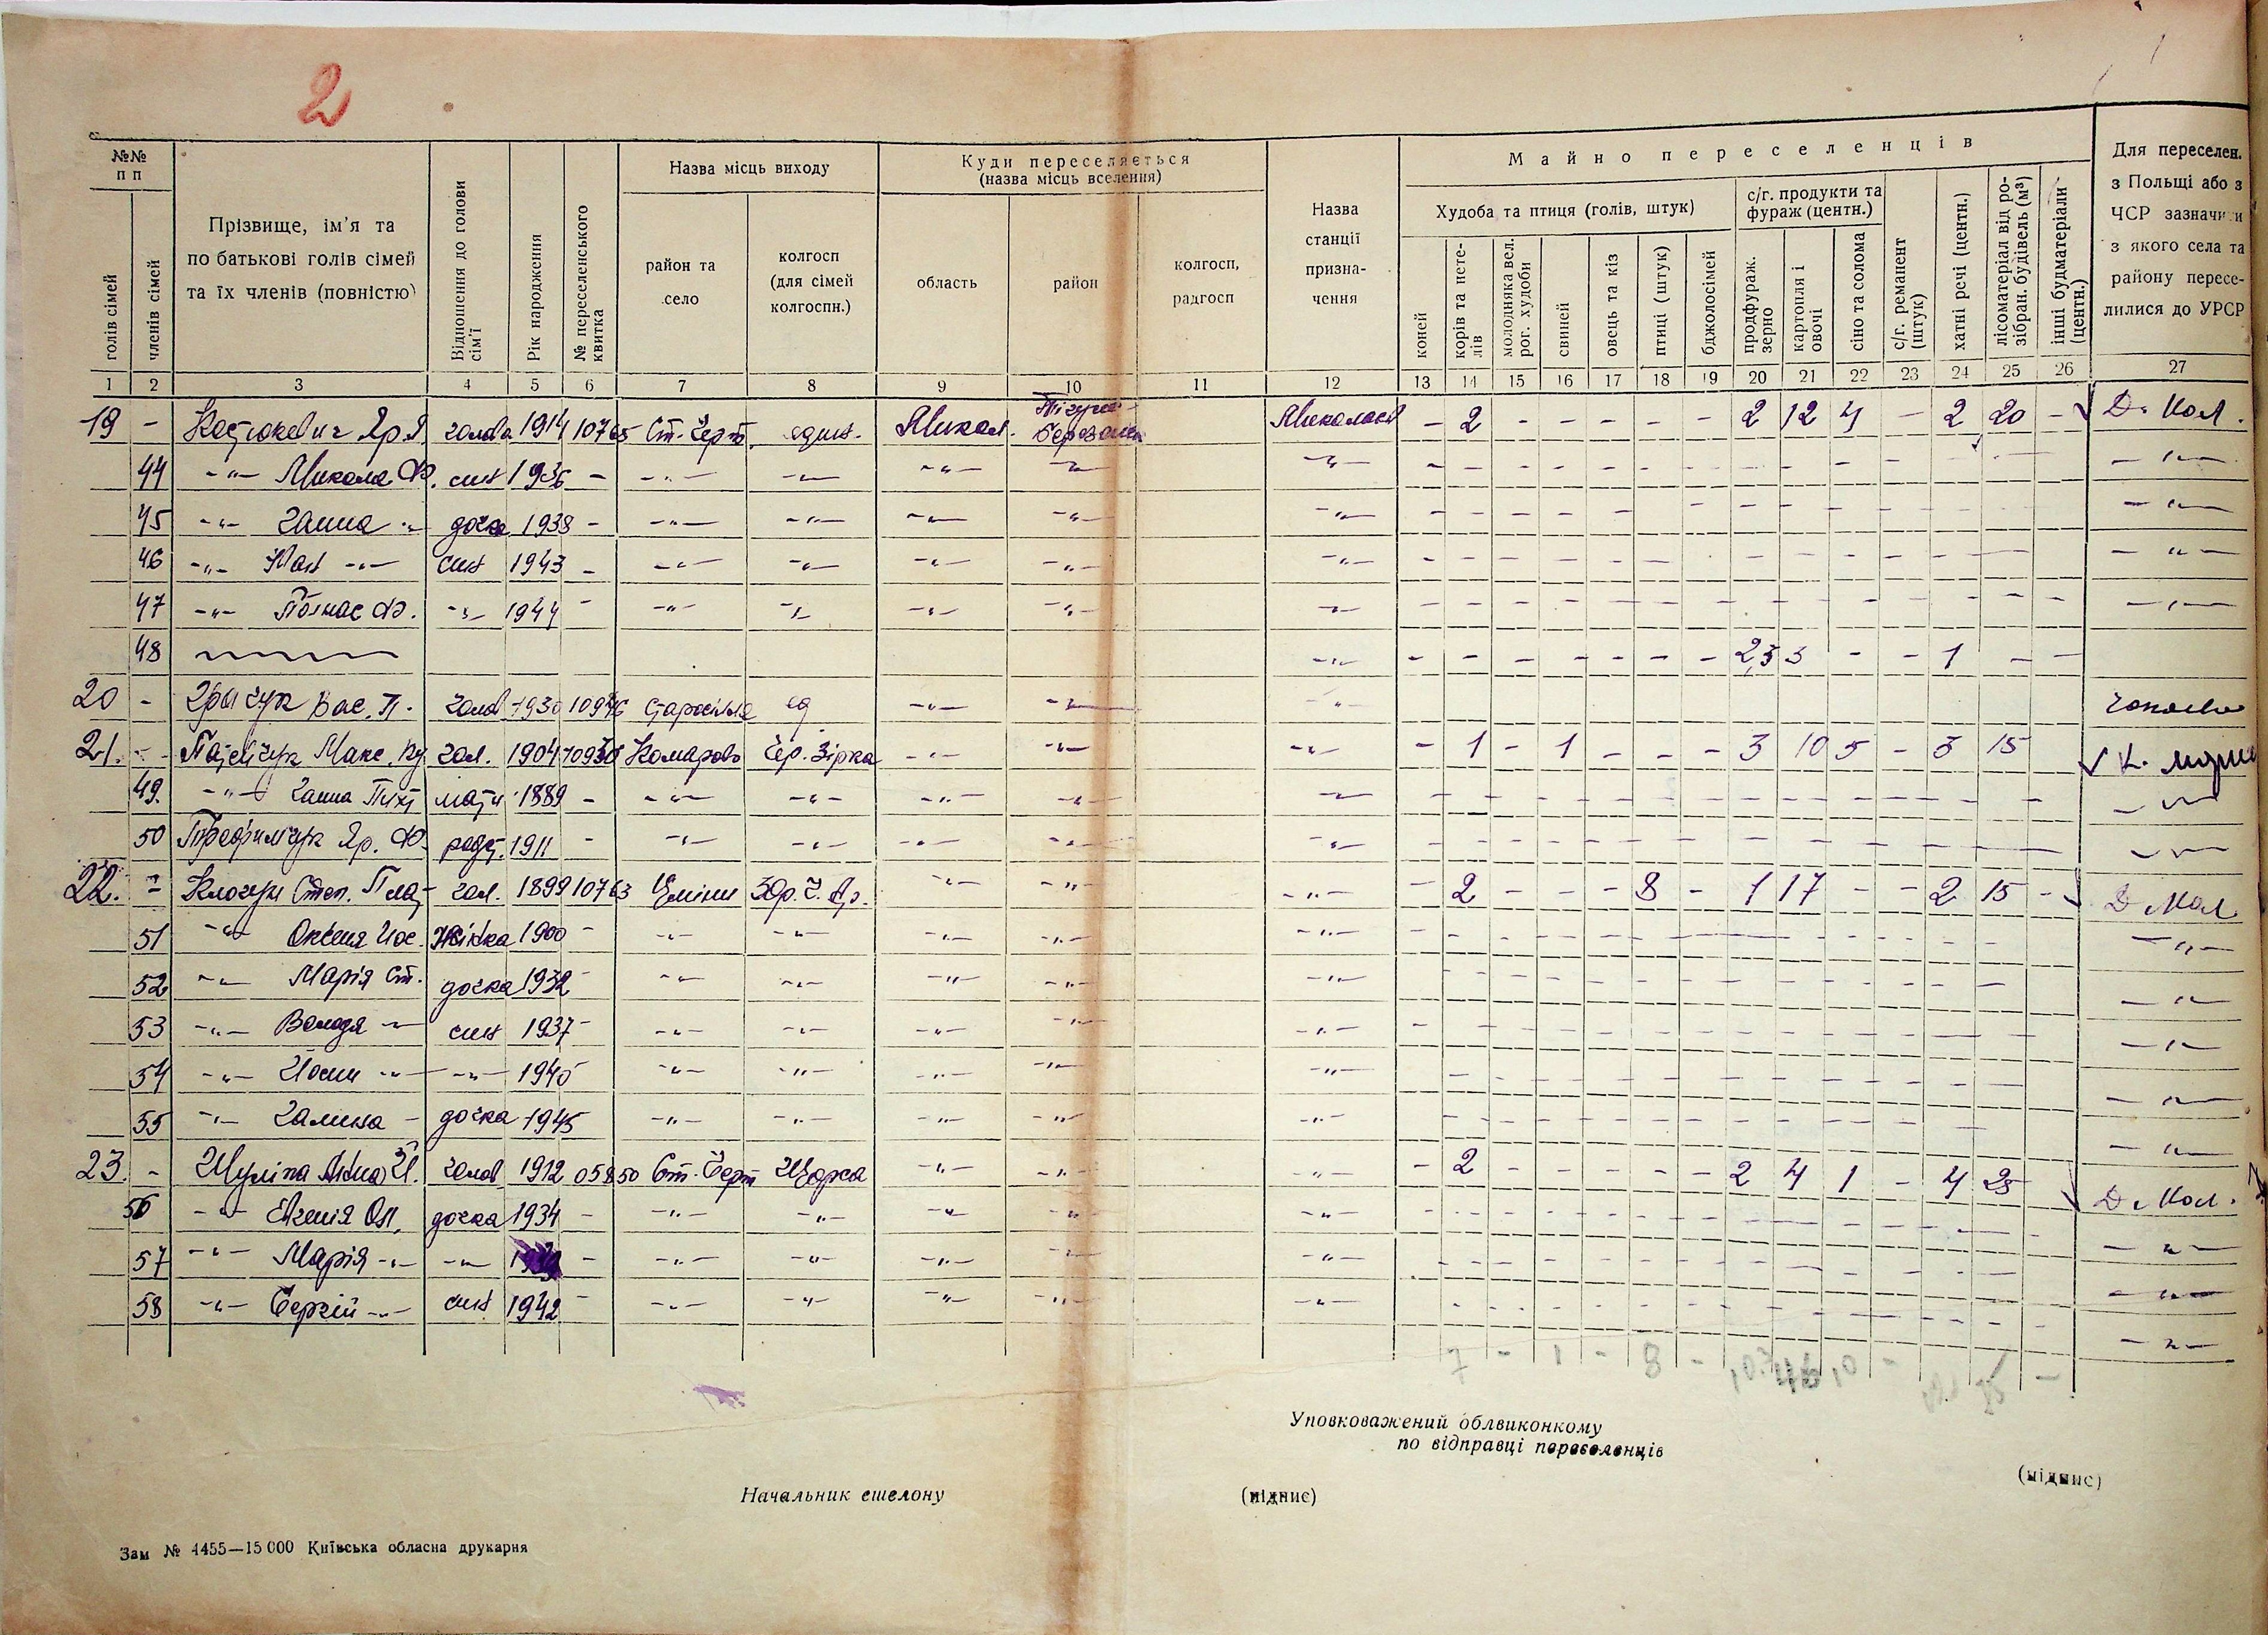 2
№№ п п
Прізвище, ім'я та по батькові голів сімей та їх членів (повністю)
Відношення до голови сім'ї
Рік народження
№ переселенського квитка
Назва місць виходу
Куди переселяється (назва місць вселення)
Назва станції призна-чення
Майно переселенців
Для переселен. з Польщі або з ЧСР зазначити з якого села та району пересе-лилися до УРСР
голів сімей
членів сімей
район та село
колгосп (для сімей колгоспн.)
область
район
колгосп, радгосп
Худоба та птиця (голів, штук)
с/г. продукти та фураж (центн.)
коней
корів та нете-лів
молодняка вел. рог. худоби
свиней
овець та кіз
птиці (штук)
бджолосімей
продфураж. зерно
картопля і овочі
сіно та солома
с/г. реманент (штук)
хатні речі (центн.)
лісоматеріал від ро-зібран. будівель (м³)
інші будматеріали (центн.)
1 2 3 4 5 6 7 8 9 10 11 12 13 14 15 16 17 18 19 20 21 22 23 24 25 26 27
19 - Костюкевич Яр. голова 1914 10765 Ст. Черт. один. Микол. Березан Миколаєв - 2 - - - - - 2 12 4 - 2 20 - Д. Кол.
44 -"- Микола Ф. син 1936 - -"- -"- -"- -"- -"- -"-
45 -"- Ганна -"- дочка 1938 - -"- -"- -"- -"- -"- -"-
46 -"- Іван -"- син 1943 - -"- -"- -"- -"- -"- -"-
47 -"- Ф. -"- 1944 - -"- -"- -"- -"- -"- -"-
48 -"- - - - - - - - 2,5 3 - - 1 - -
20 - Грычук Вас. П. голов 1930 109 Старосілля єд -"- -"- -"-
21. - Макс. гол. 1904 10930 Комарово Чер. Зірка -"- -"- -"- - 1 - 1 - - - 3 10 5 - 3 15
49. -"- Ганна мати 1889 - -"- -"- -"- -"- -"-
50 Трофимчук Яр. Ф. родт. 1911 - -"- -"- -"- -"- -"-
22. - Степ. гол. 1899 10763 Цміни -"- -"- -"- - 2 - - - 8 - 1 17 - - 2 15 - Д Кол
51 -"- Оксеня Йос. Жінка 1900 - -"- -"- -"- -"- -"- -"-
52 -"- Марія Ст. дочка 1932 - -"- -"- -"- -"- -"- -"-
53 -"- Володя -"- син 1937 - -"- -"- -"- -"- -"- -"-
54 -"- Йосип -"- -"- 1940 -"- -"- -"- -"- -"- -"-
55 -"- Галина - дочка 1945 -"- -"- -"- -"- -"- -"-
23. - Шуліпа Анна Й. голов 1912 05850 Ст. Черт Щорса -"- -"- -"- - 2 - - - - - 2 4 1 - 4 25 Д. Кол.
56 -"- Євгенія Оп. дочка 1934 - -"- -"- -"- -"- -"- -"-
57 -"- Марія -"- -"- - -"- -"- -"- -"- -"- -"-
58 -"- Сергій -"- син 1942 - -"- -"- -"- -"- -"- -"-
7 - 1 - 8 -
Уповноважений облвиконкому
по відправці переселенців
(підпис)
Начальник ешелону
(підпис)
Зам № 4455—15000 Київська обласна друкарня